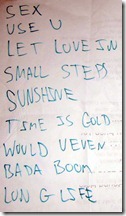 SEX
USE U
LET LOVE IN
SMALL STEPS
SUNSHINE
TIME IS GOLD
WOULD U EVEN
BADA BOOM
LONG LIFE